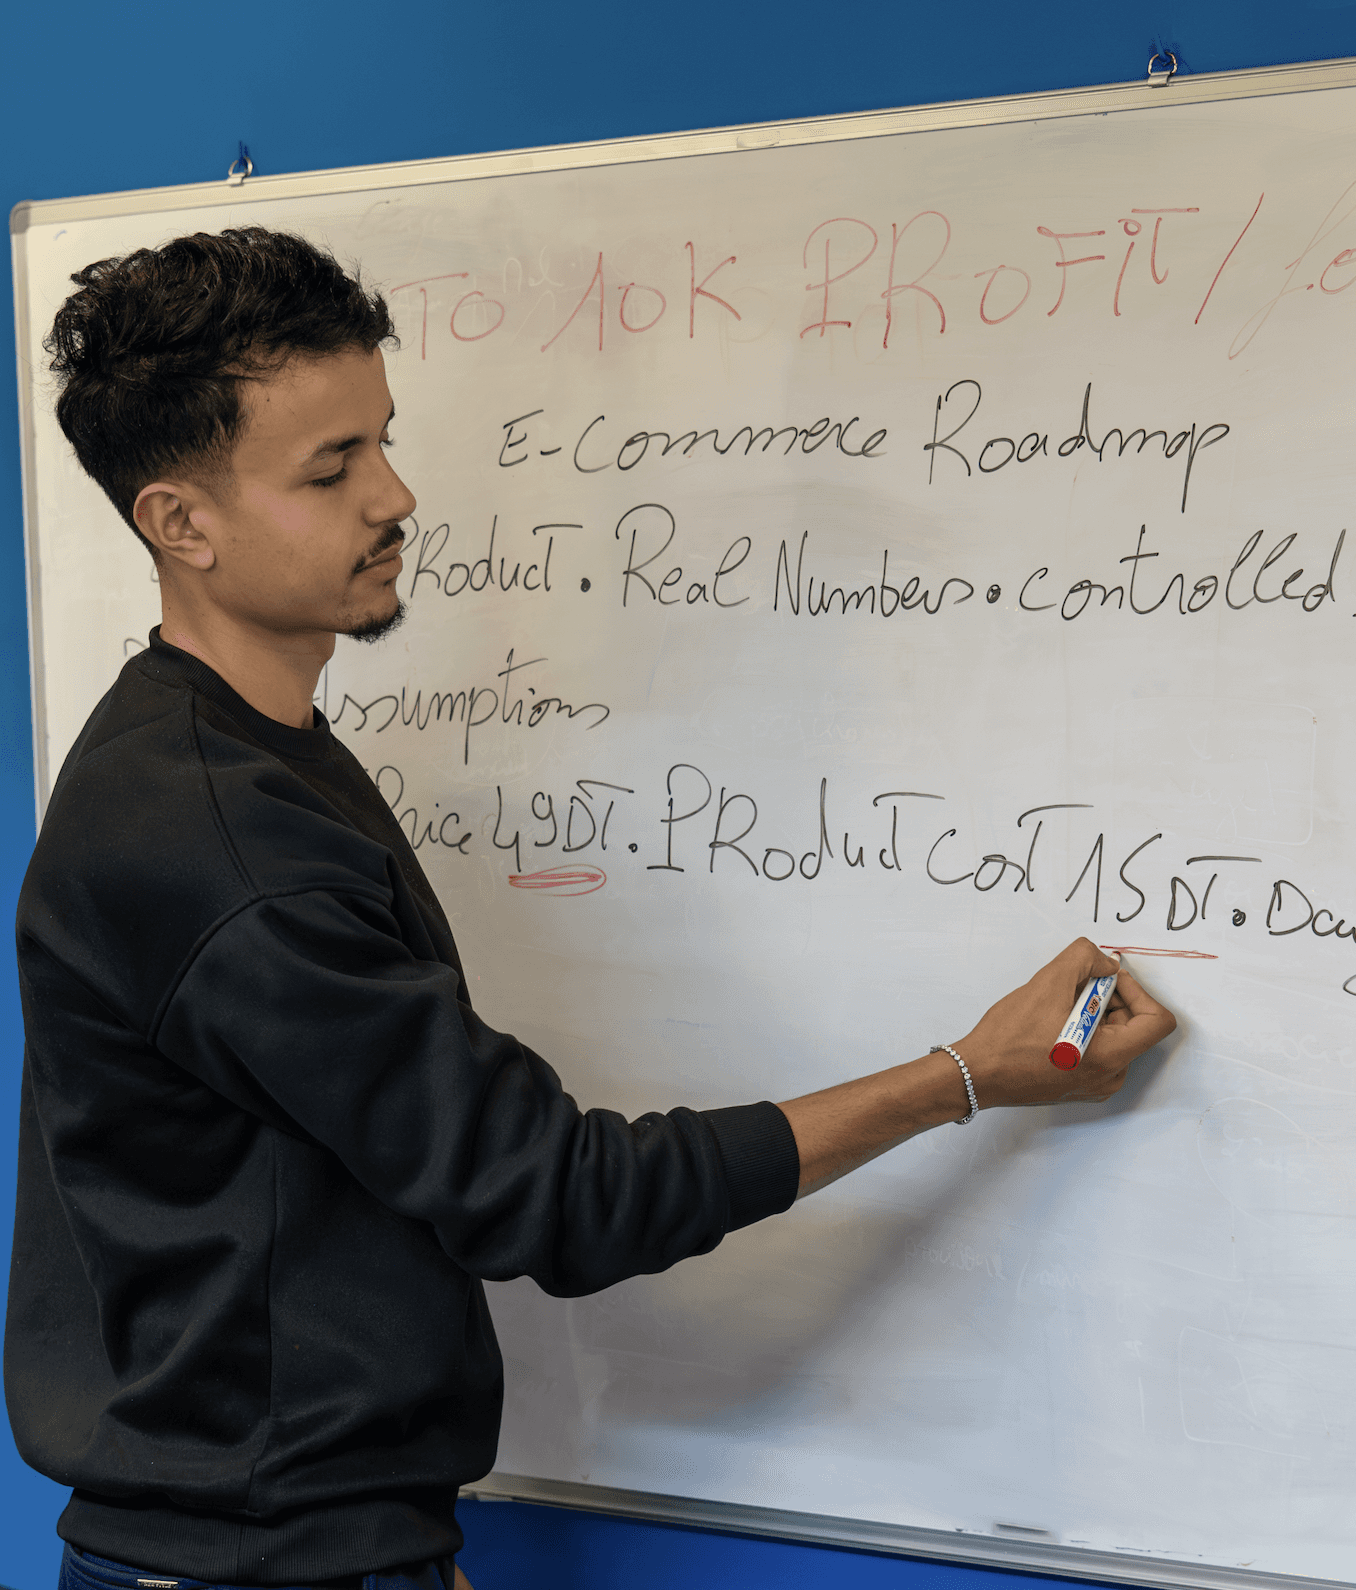 TO 10K PROFIT /
E-Commerce Roadmap
PRoduct . Real Numbers . controlled
Assumptions
Price 49DT . PRoduct Cost 15DT .
BIC